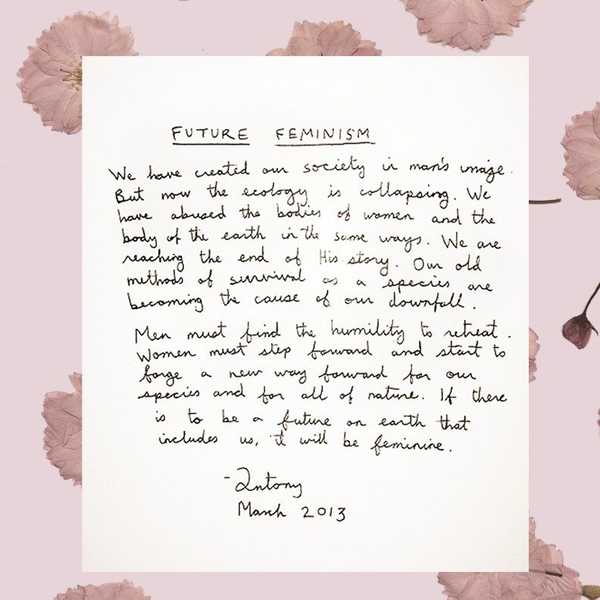 FUTURE FEMINISM
We have created our society in man's image.
But now the ecology is collapsing. We
have abused the bodies of women and the
body of the earth in the same ways. We are
reaching the end of His story. Our old
methods of survival as a species are
becoming the cause of our downfall.
Men must find the humility to retreat.
Women must step forward and start to
forge a new way forward for our
species and for all of nature. If there
is to be a future on earth that
includes us, it will be feminine.
-Antony
March 2013